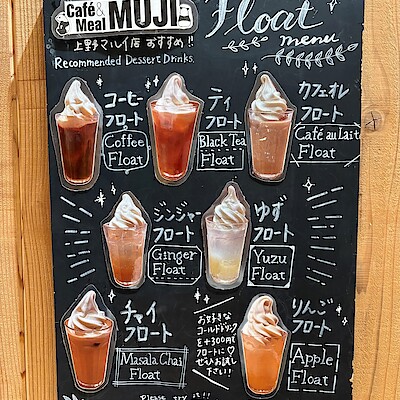 Café&
Meal MUJI
上野マルイ店 おすすめ!!
Recommended Dessert Drinks.
Float
menu
コーヒー
フロート
Coffee
Float
ティ
フロート
Black Tea
Float
カフェオレ
フロート
Café au Lait
Float
ジンジャー
フロート
Ginger
Float
ゆず
フロート
Yuzu
Float
チャイ
フロート
Masala Chai
Float
お好きな
コールドドリンク
を+300円で
フロートに♡
ぜひお試し
下さい!
りんご
フロート
Apple
Float
Please try it!!